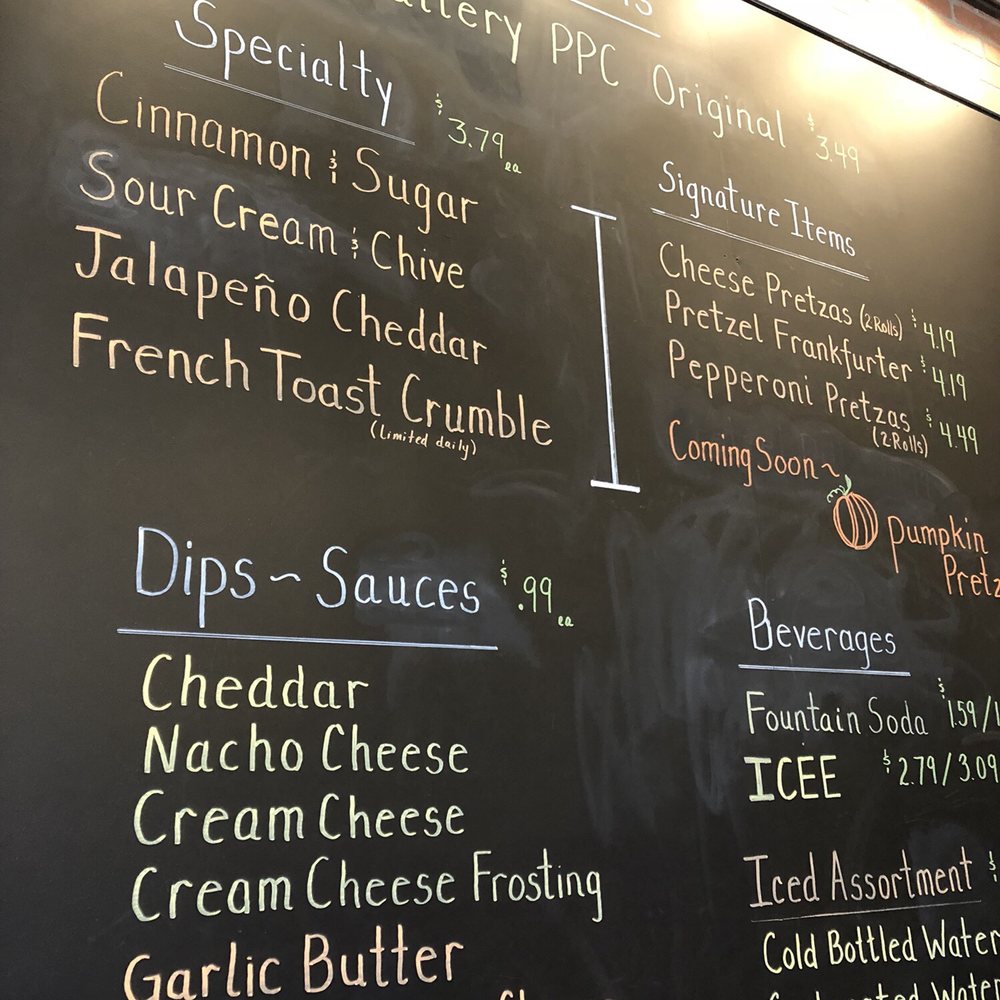 PPC Original $3.49
Specialty $3.79 ea
Cinnamon & Sugar
Sour Cream & Chive
Jalapeño Cheddar
French Toast Crumble
(Limited daily)
Signature Items
Cheese Pretzas (2 Rolls) $4.19
Pretzel Frankfurter $4.19
Pepperoni Pretzas $4.49
(2 Rolls)
Coming Soon~
Pumpkin
Dips~Sauces $.99 ea
Cheddar
Nacho Cheese
Cream Cheese
Cream Cheese Frosting
Garlic Butter
Beverages
Fountain Soda $1.59/1
ICEE $2.79/3.09
Iced Assortment $
Cold Bottled Water